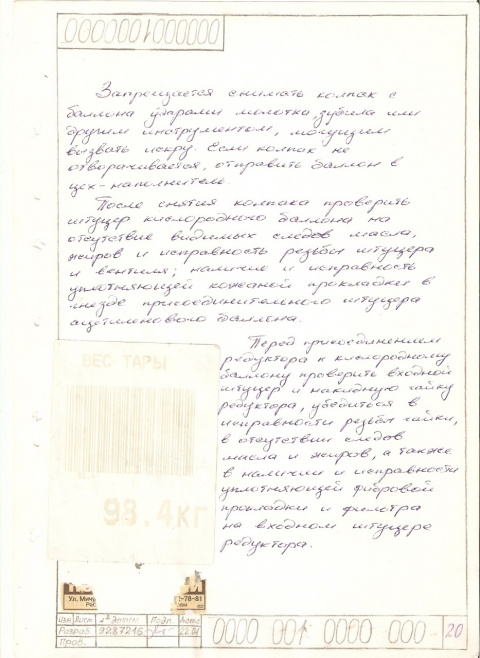 0000001000000
Запрещается снимать колпак с
баллона ударами молотка, зубила или
другим инструментом, могущим
вызвать искру. Если колпак не
отворачивается, отправить баллон в
цех-наполнитель.
После снятия колпака проверить
штуцер кислородного баллона на
отсутствие видимых следов масла,
жиров и исправность резьбы штуцера
и вентиля; наличие и исправность
уплотняющей кожаной прокладки в
гнезде присоединительного штуцера
ацетиленового баллона.
Перед присоединением
редуктора к кислородному
баллону проверить входной
штуцер и накидную гайку
редуктора, убедиться в
исправности резьбы гайки,
в отсутствии следов
масла и жиров, а также
в наличии и исправности
уплотняющей фибровой
прокладки и фильтра
на входном штуцере
редуктора.
ВЕС ТАРЫ
98.4кг
Ул. Мич
-78-81
Изм Лист Подп. Дата
Разраб 9287216 22.01
Пров.
0000 001 0000 000 20